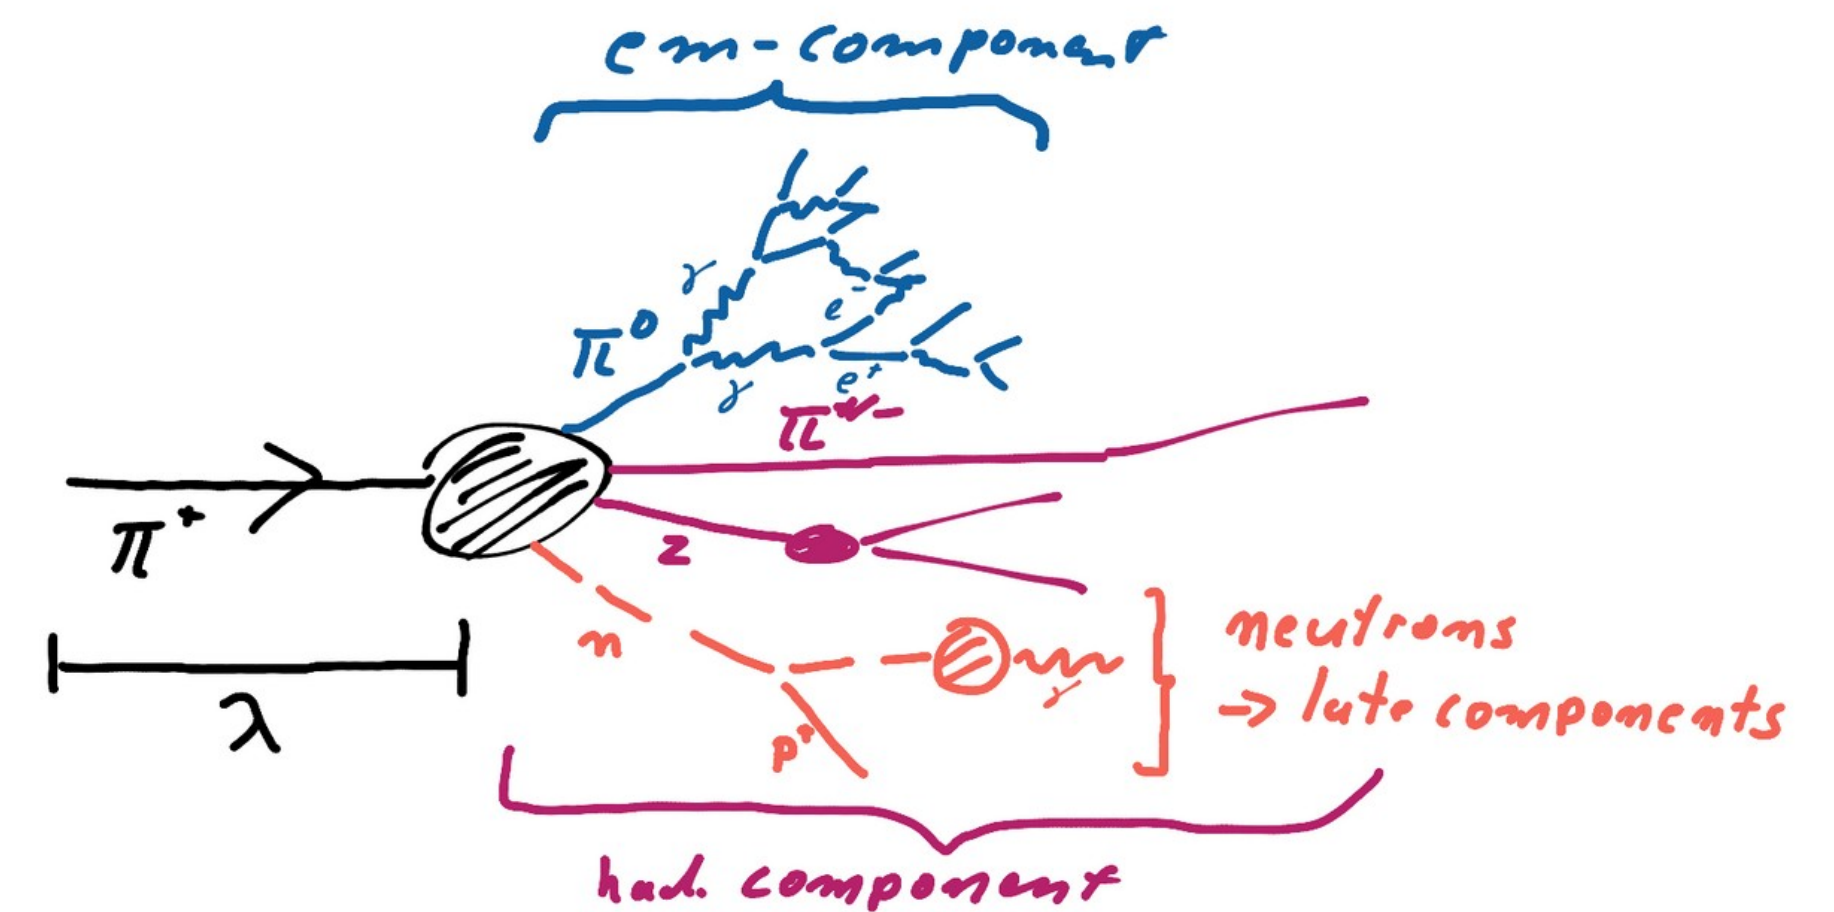 em-component
γ
π⁰
e⁻
γ
e⁺
π⁺/⁻
π⁺
z
n
neutrons
γ
→ late components
λ
p⁺
had. component